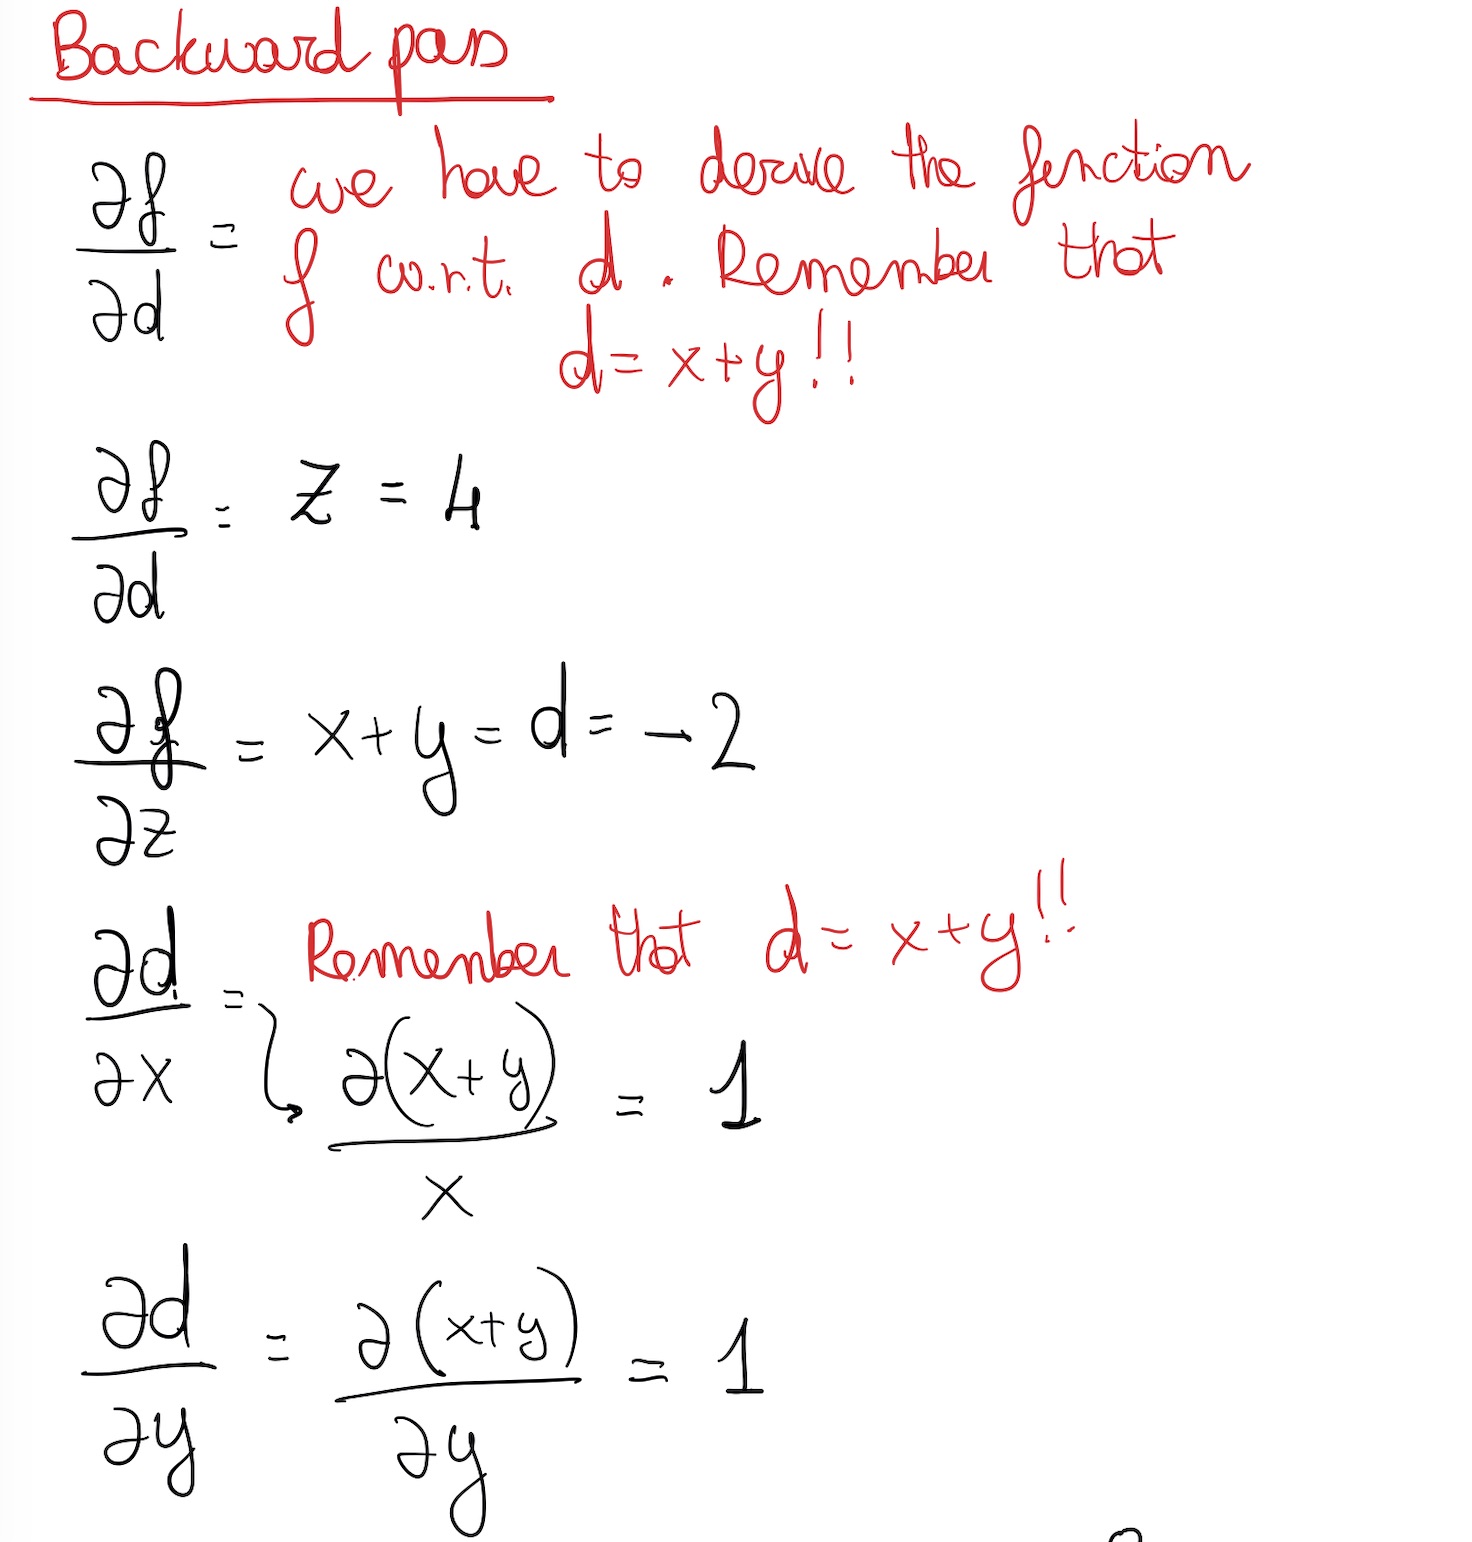 Backward pass
∂f/∂d = we have to derive the function
f w.r.t. d. Remember that
d = x+y!!
∂f/∂d = z = 4
∂f/∂z = x+y = d = -2
∂d/∂x = Remember that d = x+y!!
∂(x+y)/x = 1
∂d/∂y = ∂(x+y)/∂y = 1